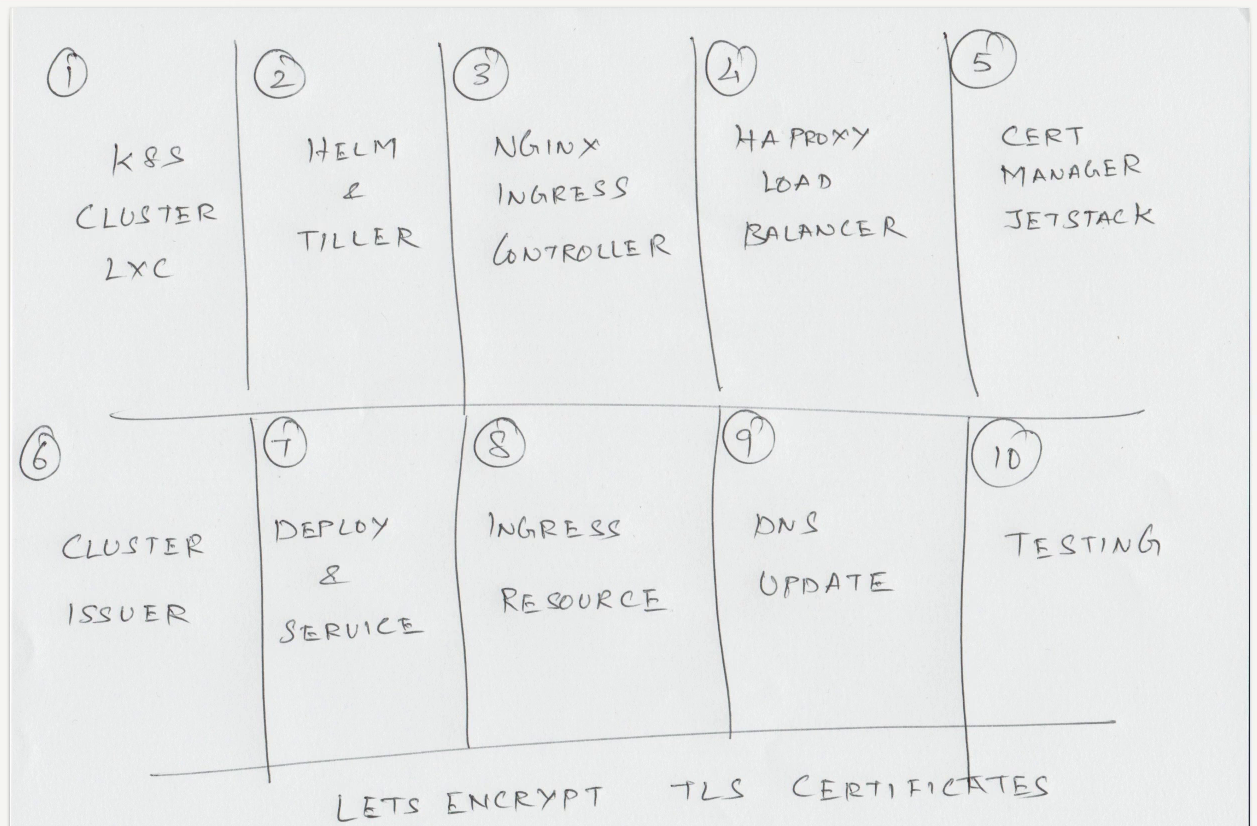 1
K8S
CLUSTER
LXC
2
HELM
&
TILLER
3
NGINX
INGRESS
CONTROLLER
4
HA PROXY
LOAD
BALANCER
5
CERT
MANAGER
JETSTACK
6
CLUSTER
ISSUER
7
DEPLOY
&
SERVICE
8
INGRESS
RESOURCE
9
DNS
UPDATE
10
TESTING
LETS ENCRYPT TLS CERTIFICATES